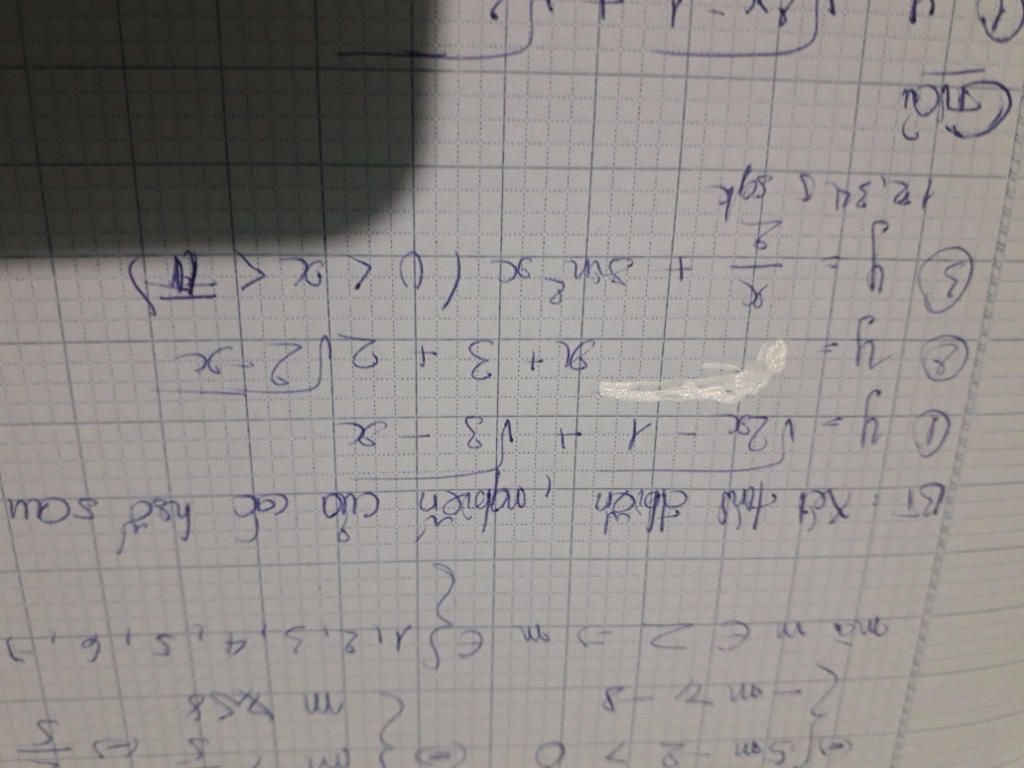 { 5m - 2 > 0
{ - m > - 8
{ m < 8
mà m ∈ Z => m ∈ { 1, 2, 3, 4, 5, 6, 7
BT: Xét tính đbiến, nghbiến của các hsố sau
① y = √2x - 1 + √3 - x
② y = x + 3 + 2√2 - x
③ y = x/2 + sin²x ( 0 < x < π )
1,2,3,4,5 sgk
Giải
① y = √2x - 1 + √3